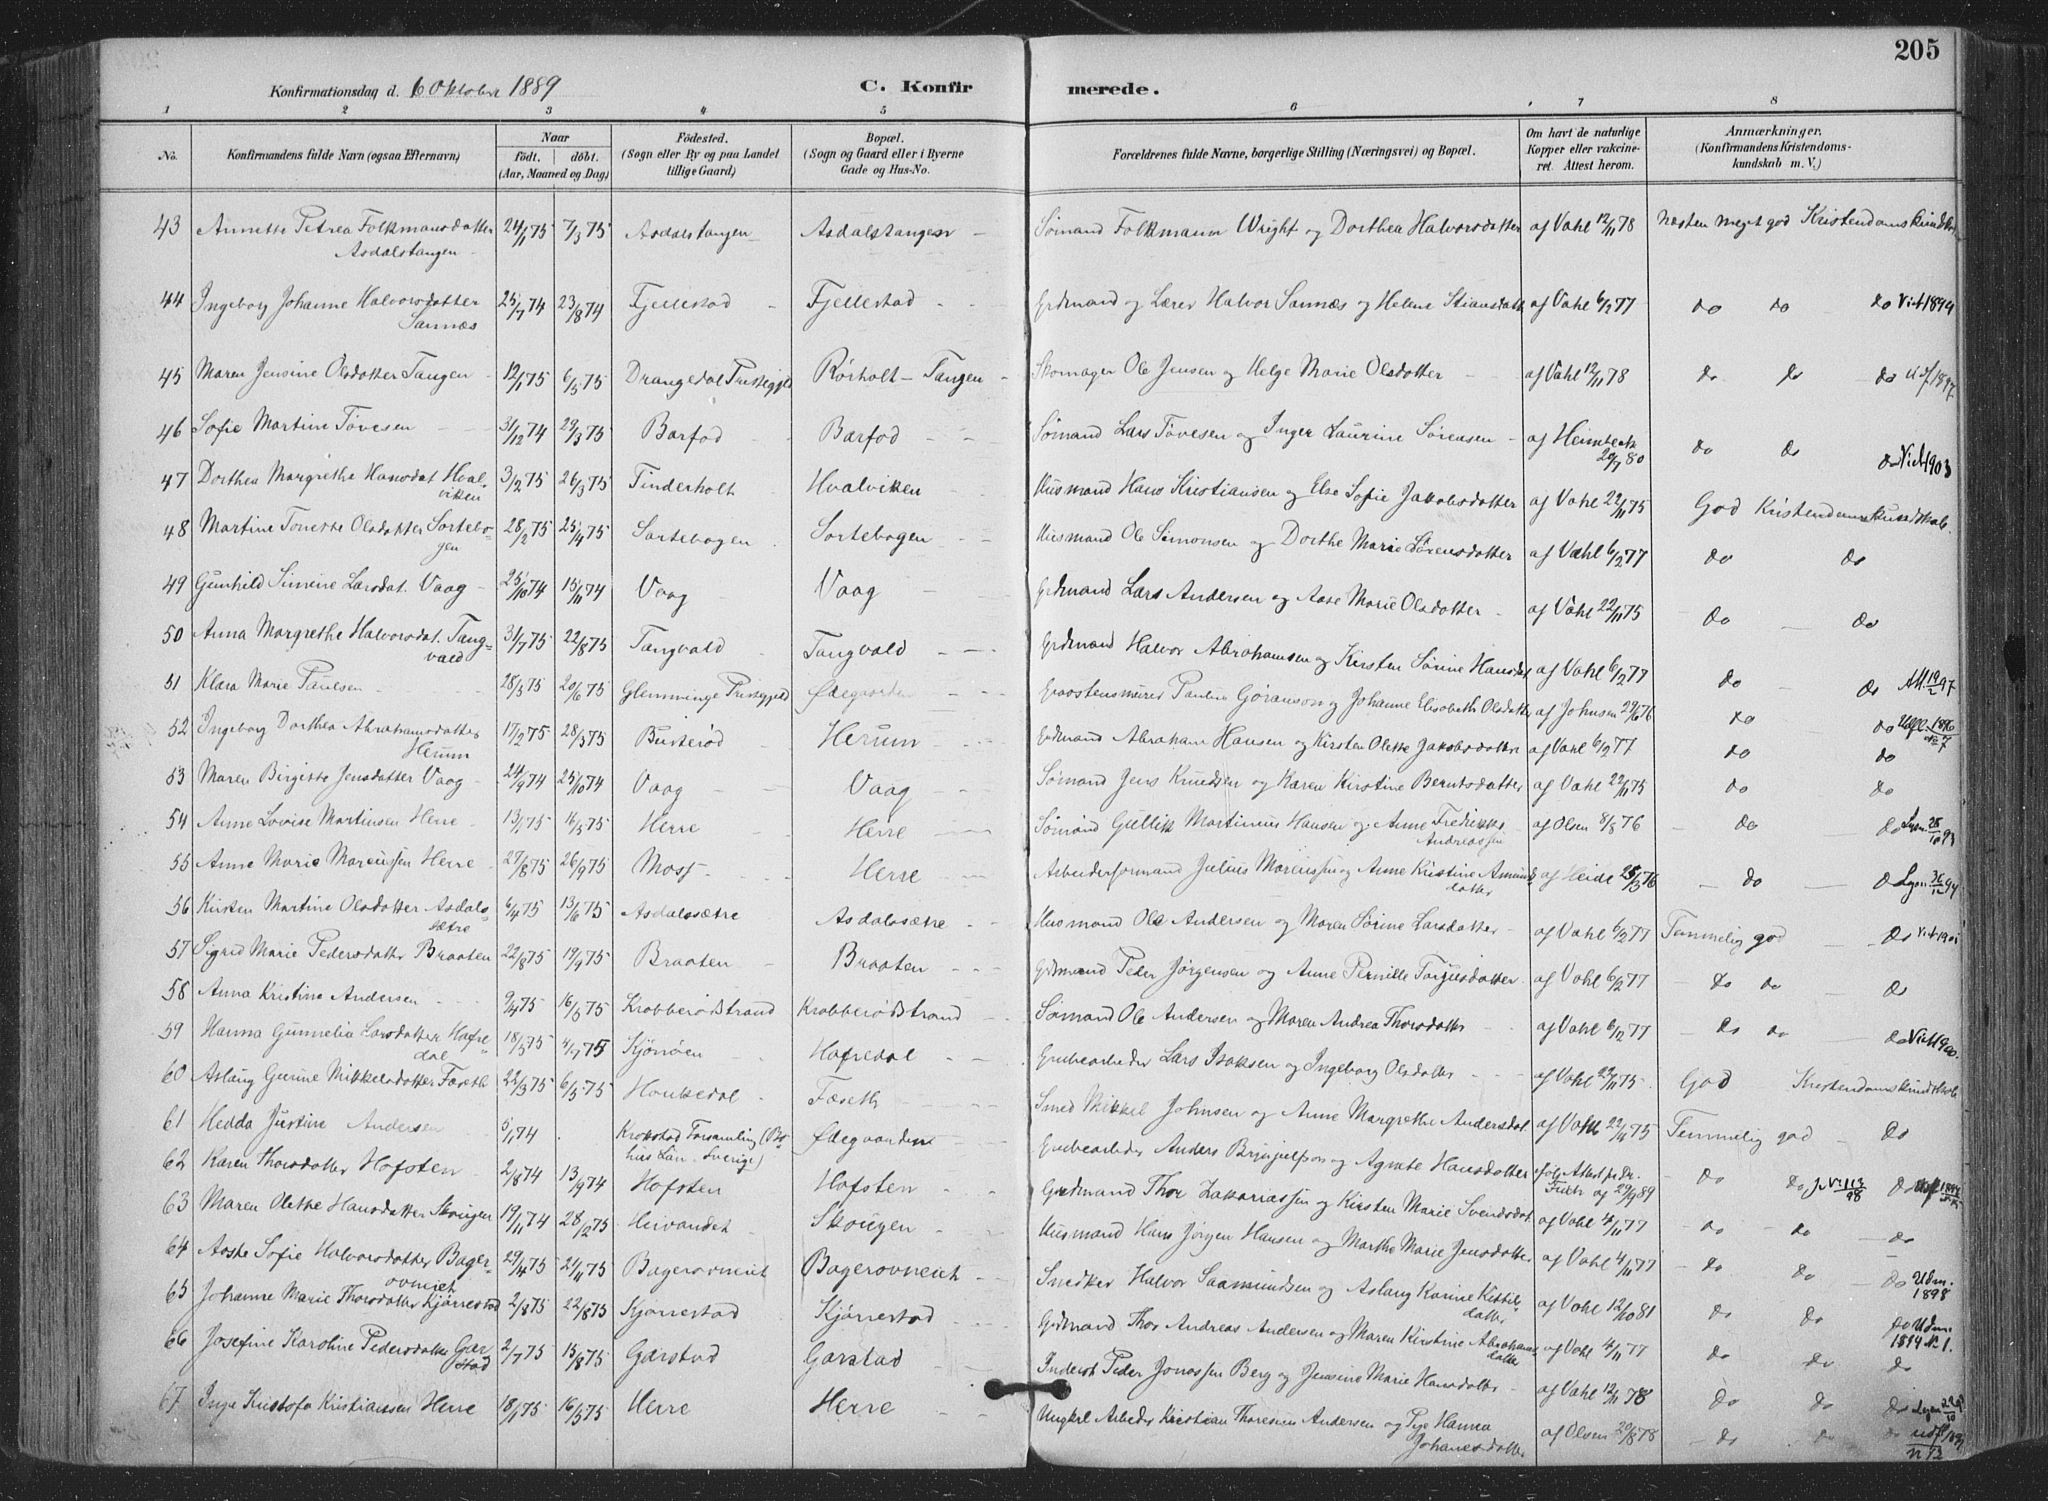 205
Konfirmationsdag d. 6 Oktober 1889 C. Konfir merede.
1 2 3 4 5 6 7 8
No. Konfirmandens fulde Navn (ogsaa Efternavn) Naar født. døbt. (Aar, Maaned og Dag) Fødested. (Sogn eller By og paa Landet tillige Gaard) Bopæl. (Sogn og Gaard eller i Byerne Gade og Hus-No. Forældrenes fulde Navne, borgerlige Stilling (Næringsvei) og Bopæl. Om havt de naturlige Kopper eller vakcineret. Attest herom. Anmærkninger. (Konfirmandens Kristendomskundskab m. V.)
43 Annette Petrea Folkmansdatter Asdalstangen 24/1 75 7/3 75 Asdalstangen Asdalstangen Sømand Folkmann Wright og Dorthea Halvorsdatter af Vahl 12/11 78 Næsten meget god Kristendomskundsk
44 Ingeborg Johanne Halvorsdatter Sannæs 25/7 74 23/8 74 Fjellestad Fjellestad Grdmand og Lærer Halvor Sannæs og Helene Stiansdatt af Vahl 6/2 77 do do do Vict 1894
45 Maren Jensine Olsdatter Tangen 12/1 75 6/5 75 Drangedal Prestegjeld Rørholt - Tangen Skomager Ole Jensen og Helge Marie Olsdatter af Vahl 12/11 78 do do do Udf. 1897.
46 Sofie Martine Tøvesen 31/12 74 29/3 75 Barfod Barfod Sømand Lars Tøvesen og Inger Laurine Sørensen af Heimbeck 20/7 80 do do do Vict 1903
47 Dorthea Margrethe Hansdat Hvalviken 3/2 75 26/3 75 Tinderholt Hvalviken Husmand Hans Kristiansen og Else Sofie Jakobsdatter af Vahl 22/11 75 God Kristendomskundskab.
48 Martine Tonette Olsdatter Sortebogen 28/2 75 25/4 75 Sortebogen Sortebogen Husmand Ole Simonsen og Dorthe Marie Sørensdatter af Vahl 6/2 77 do do
49 Gunhild Simine Larsdat. Vaag 25/10 74 15/11 74 Vaag Vaag Grdmand Lars Andersen og Aase Marie Olsdatter af Vahl 22/11 75 do do
50 Anna Margrethe Halvorsdat. Tangvald 31/7 75 22/8 75 Tangvald Tangvald Grdmand Halvor Abrahamsen og Kirsten Sørine Hansdat af Vahl 6/2 77 do do Att. 19/2 97
51 Klara Marie Paulsen 28/3 75 20/6 75 Glemminge Prestegjeld Ødegaarden Paulin Göranson og Johanne Elisabeth Olsdatter af Johnsen 29/6 76 do do
52 Ingeborg Dorthea Abrahamsdatter Herum 17/2 75 28/3 75 Buterød Herum Grdmand Abraham Hansen og Kirsten Olette Jakobsdatter af Vahl 6/2 77 do do
53 Maren Birgitte Jensdatter Vaag 24/9 74 25/10 74 Vaag Vaag Sømand Jens Knudsen og Karen Kirstine Berntsdatter af Vahl 22/11 75 do do
54 Anne Lovise Martinsen Herre 13/1 75 16/5 75 Herre Herre Sømand Gullik Martinius Hansen og Anne Fredrikke Andreassen af Olsen 8/8 76 do do
55 Anne Marie Marcussen Herre 27/8 75 26/9 75 Moss Herre Arbeiderformand Julius Marcussen og Anne Kristine Amundsdatter af Heide 25/5 76 do do
56 Kirsten Martine Olsdatter Asdalssætre 6/4 75 13/6 75 Asdalssætre Asdalssætre Husmand Ole Andersen og Maren Sørine Larsdatter af Vahl 6/2 77 Temmelig god do
57 Sigrid Marie Pedersdatter Braaten 22/8 75 19/9 75 Braaten Braaten Grdmand Peder Jørgensen og Anne Pernille Torjusdatter af Vahl 6/2 77 do do do
58 Anna Kristine Andersen 9/4 75 16/5 75 Krabberødstrand Krabberødstrand Sømand Ole Andersen og Maren Andrea Thorsdatter af Vahl 6/2 77 do do do Vict 1900.
59 Hanna Gunnelia Larsdatter Hafredal 18/5 75 4/7 75 Kjønøen Hafredal Grubearbeder Lars Isaksen og Ingeborg Olsdatter af Vahl 22/11 75. God Kristendomskundskab
60 Aslaug Gurine Mikkelsdatter Fæseth 22/3 75 6/5 75 Houkedal Fæseth Smed Mikkel Johnsen og Anne Margrethe Andersdat af Vahl 22/11 75 Temmelig god do
61 Hedda Justine Andersen 5/1 74 Krokstad Forsamling (Bohus Län - Sverige) Ødegaarden Grubearbeder Anders Brynjulfson og Agnete Hansdatter do do do
62 Karen Thorsdatter Hafsten 2/8 74 13/9 74 Hafsten Hafsten Grdmand Thor Zakkariassen og Kirsten Marie Svendsdat af Vahl 4/11 77 do do do
63 Maren Olette Hansdatter Skougen 19/11 74 28/2 75 Heivandet Skougen Husmand Hans Jørgen Hansen og Marthe Marie Jensdatter af Vahl 4/11 77 do do do Udm. 1898
64 Aaste Sofie Halvorsdatter Bagerovneiet 29/4 75 21/11 75 Bagerovneiet Bagerovneiet Snedker Halvor Saamundsen og Aslaug Karine Kittilsdatter af Vahl 12/10 81 do do do Udm. 1894 № 1.
65 Johanne Marie Thorsdatter Kjørrestad 2/8 75 22/8 75 Kjørrestad Kjørrestad Grdmand Thor Andreas Andersen og Maren Kirstine Abrahamsdatter af Vahl 4/11 77 do do do
66 Josefine Karoline Pedersdatter Garstad 2/7 75 15/8 75 Garstad Garstad Inderst Peder Jonassen Berg og Jensine Marie Hansdatter af Vahl 12/11 78 do do do
67 Inge Kristofa Kristiansen Herre 18/1 75 16/5 75 Herre Herre Ungkrl Arbeder Kristian Thoresen Andersen og Hanna Johanesdatter af Olsen 20/8 78 do do do